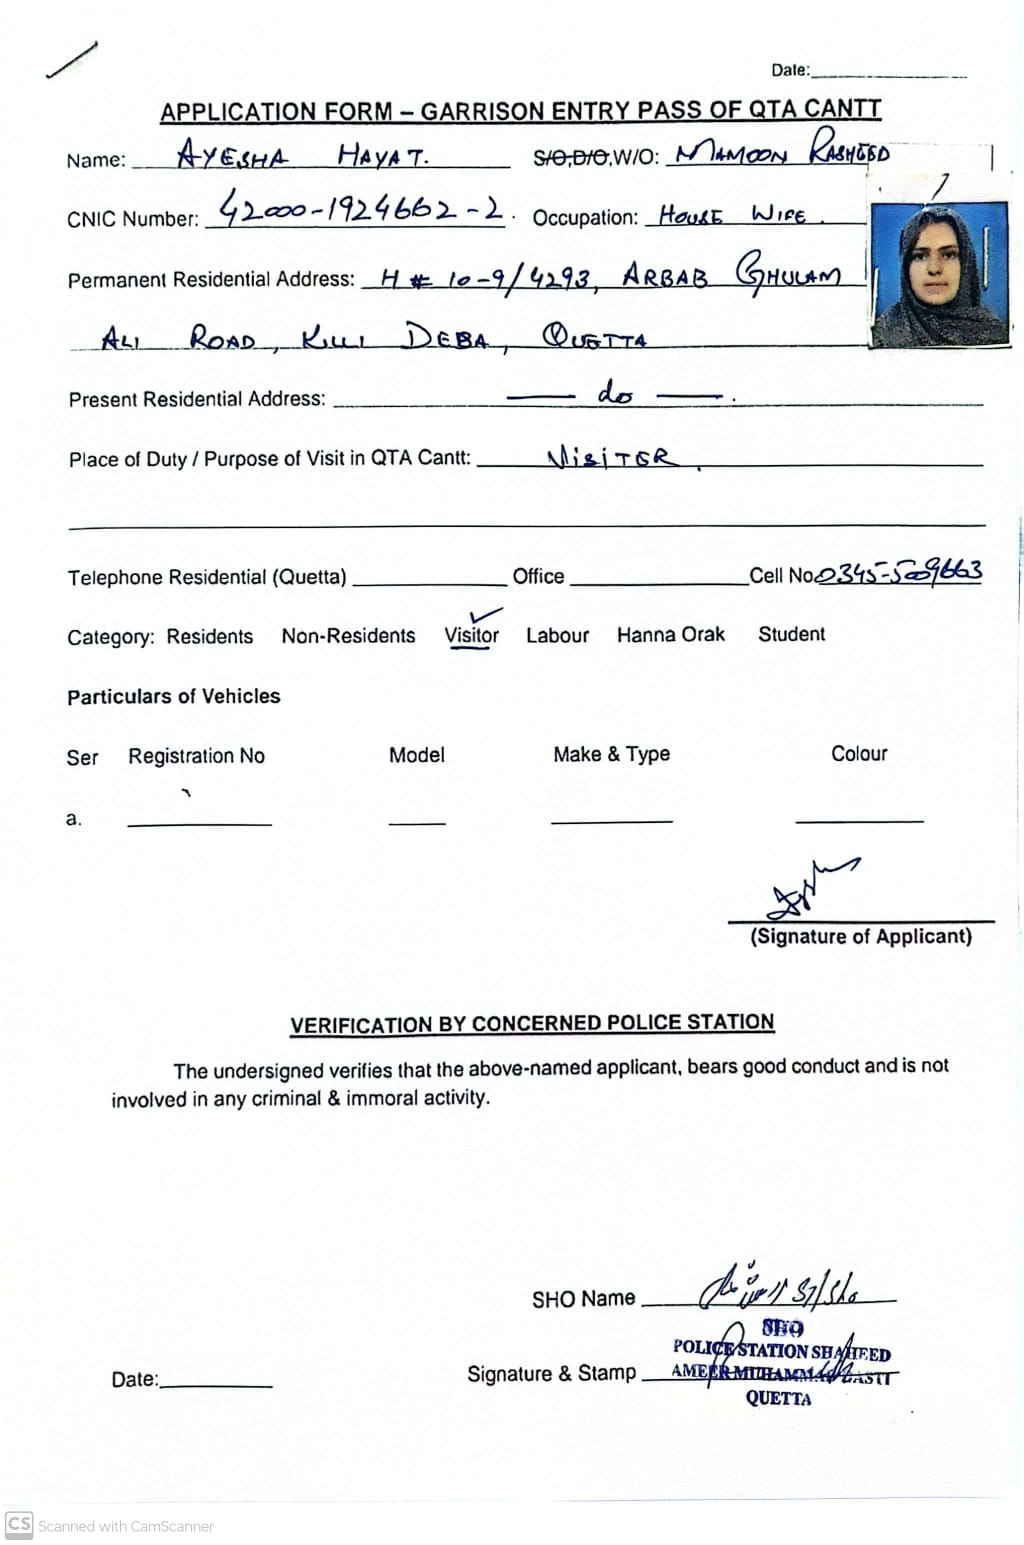 Date:
APPLICATION FORM – GARRISON ENTRY PASS OF QTA CANTT
Name: AYESHA HAYAT. S/O,D/O,W/O: MAMOON RASHEED
CNIC Number: 42000-1924662-2. Occupation: HOUSE WIFE.
Permanent Residential Address: H # 10-9/4293, ARBAB GHULAM
ALI ROAD, KILLI DEBA, QUETTA
Present Residential Address: — do —.
Place of Duty / Purpose of Visit in QTA Cantt: VISITER.
Telephone Residential (Quetta) Office Cell No 0345-5009663
Category: Residents Non-Residents Visitor Labour Hanna Orak Student
Particulars of Vehicles
Ser Registration No Model Make & Type Colour
a.
(Signature of Applicant)
VERIFICATION BY CONCERNED POLICE STATION
The undersigned verifies that the above-named applicant, bears good conduct and is not
involved in any criminal & immoral activity.
SHO Name SI/SHO
SHO
POLICE STATION SHAHEED
Signature & Stamp AMEER MUHAMMAD DASTI
Date:
QUETTA
CS Scanned with CamScanner